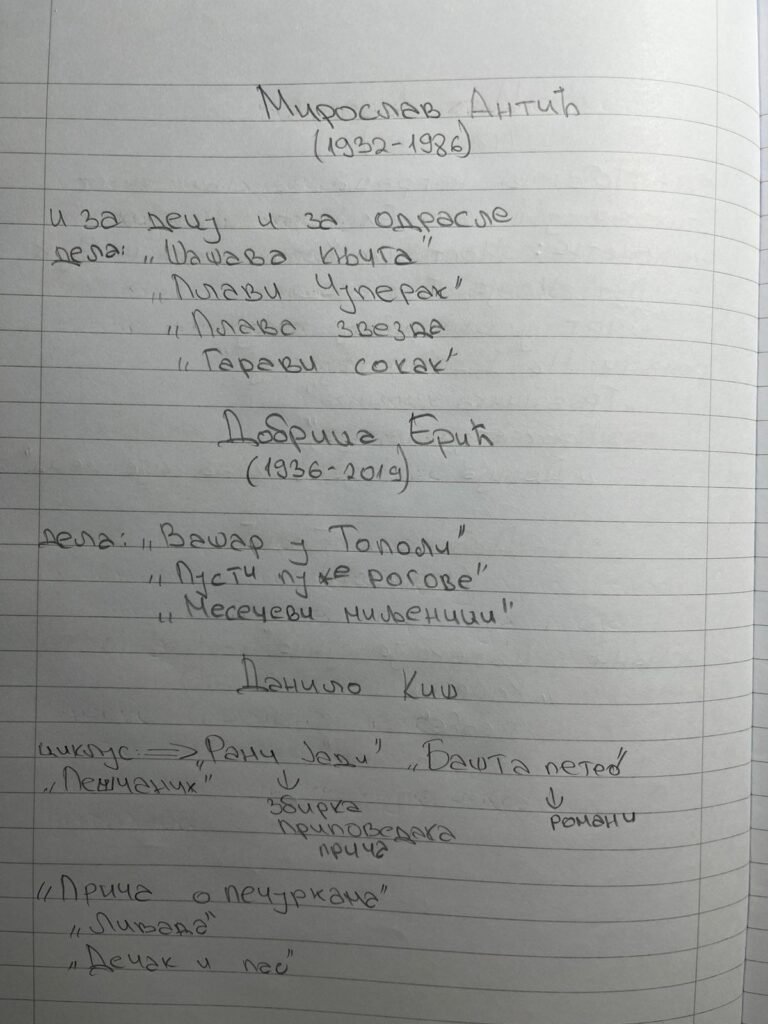 Мирослав Антић
(1932-1986)
и за децу и за одрасле
дела: „Шашава књига"
„Плави Чуперак"
„Плава звезда
„Гарави сокак"
Добрица Ерић
(1936-2019)
дела: „Вашар у Тополи"
„Пусти пуже рогове"
„Месечеви миљеници"
Данило Киш
циклус: => „Рани јади" „Башта пепео"
„Пешчаник" ↓ ↓
збирка романи
приповедака
прича
„Прича о печуркама"
„Ливада"
„Дечак и пас"